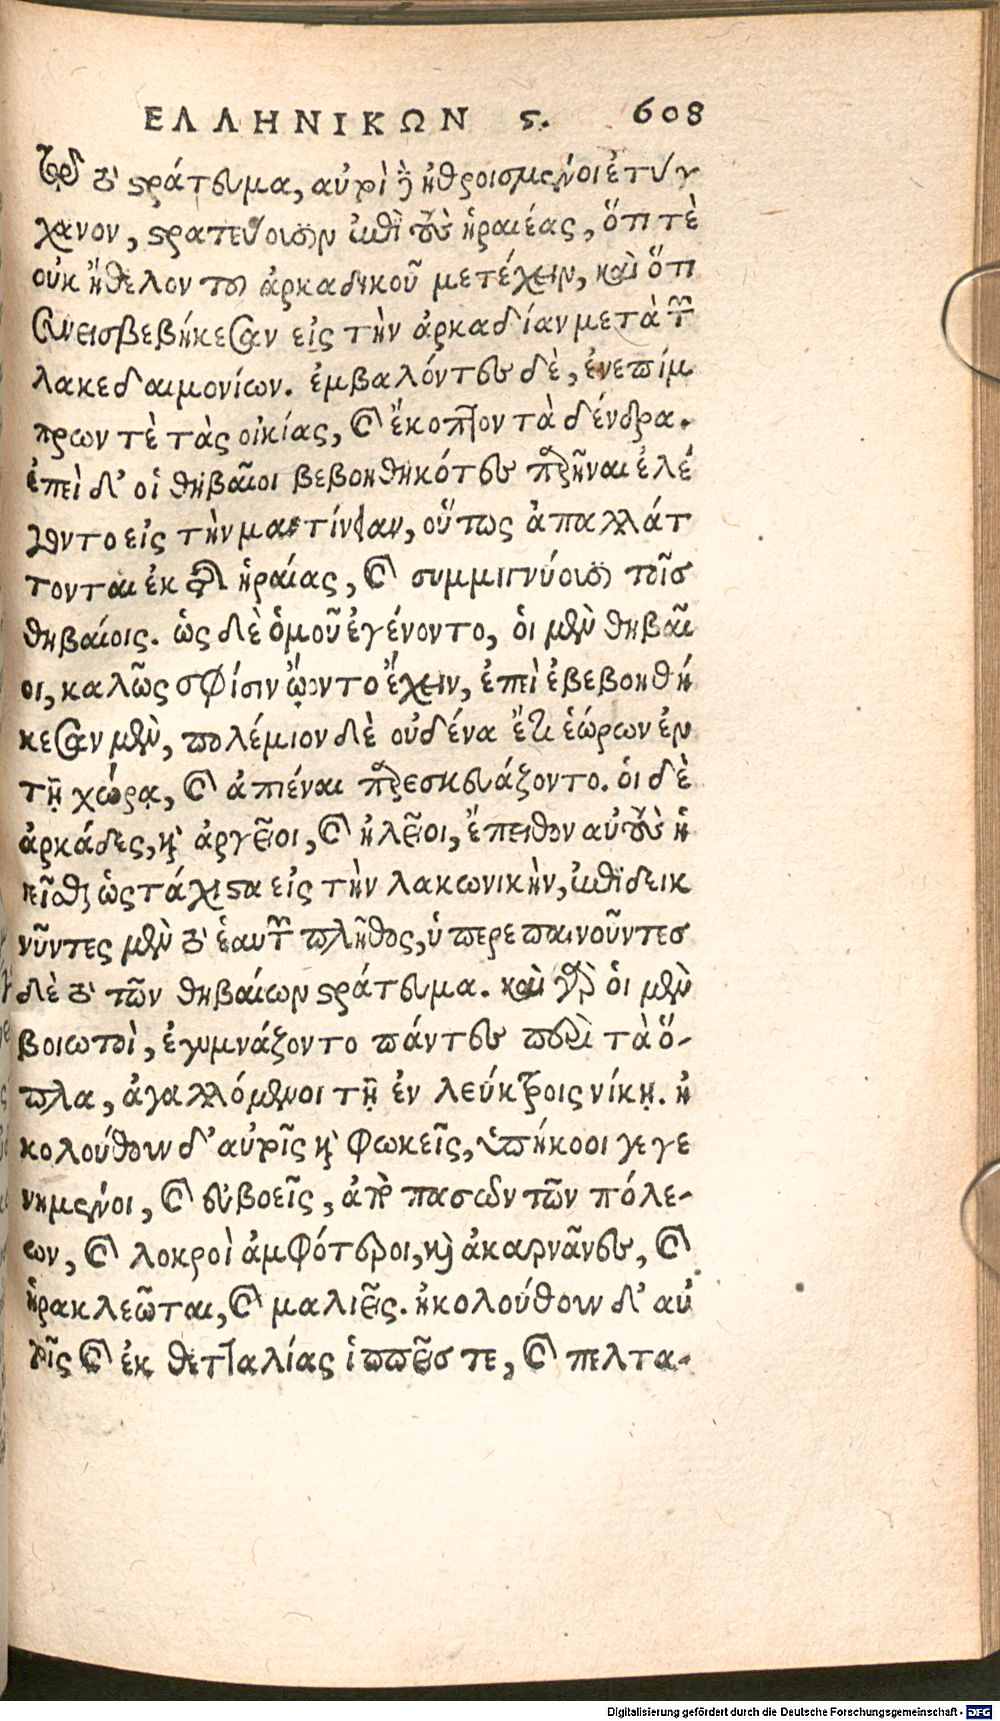 ΕΛΛΗΝΙΚΩΝ ϛ. 608
τὸ στράτευμα, αὐτοὶ δὲ ἠθροισμένοι ἐτύγ
χανον, στρατεύουσιν ἐπὶ τοὺς ἡραιέας, ὅτι τὲ
οὐκ ἤθελον τοῦ ἀρκαδικοῦ μετέχειν, καὶ ὅτι
συνεισβεβήκεσαν εἰς τὴν ἀρκαδίαν μετὰ τῶν
λακεδαιμονίων. ἐμβαλόντες δὲ, ἐνεπίμ
πρων τὲ τὰς οἰκίας, καὶ ἔκοπτον τὰ δένδρα.
ἐπεὶ δ' οἱ θηβαῖοι βεβοηθηκότες παρεῖναι ἐλέ
γοντο εἰς τὴν μαντίνειαν, οὕτως ἀπαλλάτ
τονται ἐκ τῆς ἡραίας, καὶ συμμιγνύουσι τοῖσ
θηβαίοις. ὡς δὲ ὁμοῦ ἐγένοντο, οἱ μὲν θηβαῖ
οι, καλῶς σφίσιν ᾤοντο ἔχειν, ἐπεὶ ἐβεβοηθή
κεσαν μὲν, πολέμιον δὲ οὐδένα ἔτι ἑώρων ἐν
τῇ χώρᾳ, καὶ ἀπιέναι παρεσκευάζοντο. οἱ δὲ
ἀρκάδες, καὶ ἀργεῖοι, καὶ ἠλεῖοι, ἔπειθον αὐτοὺς ἡ
γεῖσθαι ὡς τάχιστα εἰς τὴν λακωνικὴν, ἐπιδεικ
νῦντες μὲν τὸ ἑαυτῶν πλῆθος, ὑπερεπαινοῦντεσ
δὲ τὸ τῶν θηβαίων στράτευμα. καὶ γὰρ οἱ μὲν
βοιωτοὶ, ἐγυμνάζοντο πάντες περὶ τὰ ὅ-
πλα, ἀγαλλόμενοι τῇ ἐν λεύκτροις νίκῃ. ἠ
κολούθουν δ' αὐτοῖς καὶ φωκεῖς, ὑπήκοοι γεγε
νημένοι, καὶ εὐβοεῖς, ἀπὸ πασῶν τῶν πόλε-
ων, καὶ λοκροὶ ἀμφότεροι, καὶ ἀκαρνᾶνες, καὶ
ἡρακλεῶται, καὶ μαλιεῖς. ἠκολούθουν δ' αὐ
τοῖς καὶ ἐκ θετταλίας ἱππεῖσ τε, καὶ πελτα-
Digitalisierung gefördert durch die Deutsche Forschungsgemeinschaft - DFG